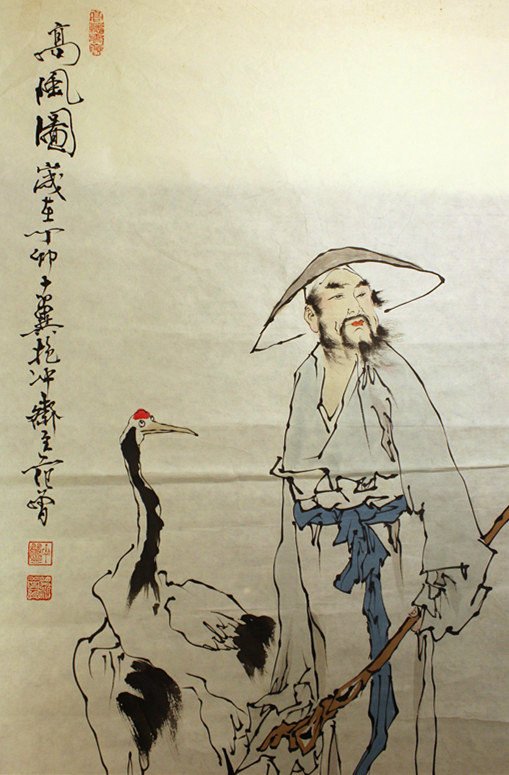 高風圖歲在丁卯十翼抱冲齋主范曾